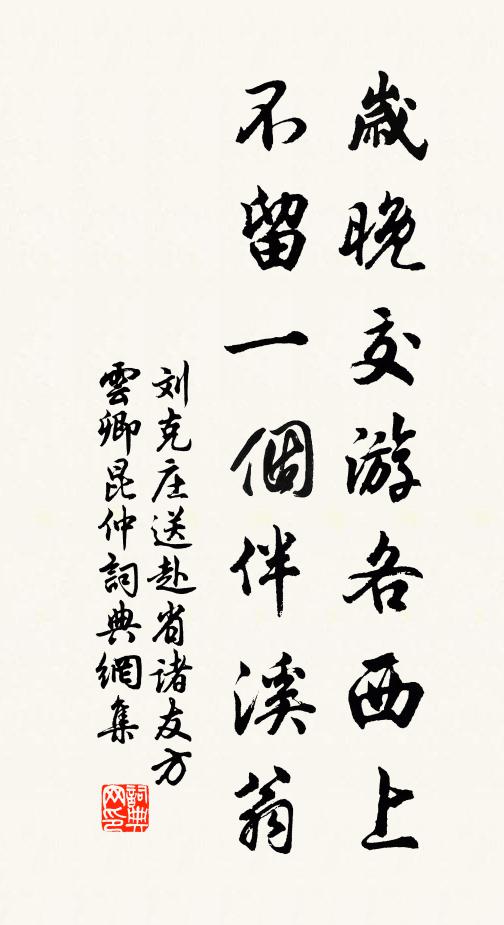 歲晚交游各西上
不留一個伴溪翁
刘克庄送赴省诸友方
雲卿昆仲詞典網集
詞典
网印